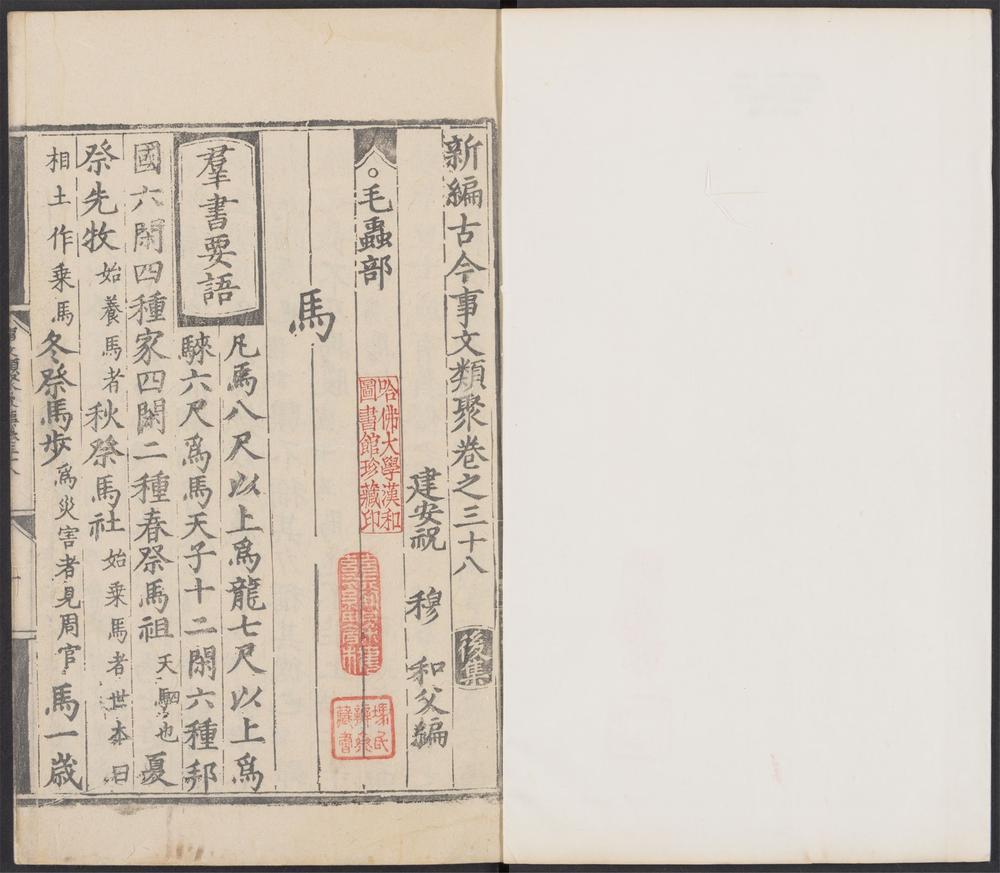 新編古今事文類聚卷之三十八 後集
建安祝 穆 和父編
毛蟲部
哈佛大學漢和
圖書館珍藏印
馬
羣書要語
凡馬八尺以上爲龍七尺以上爲
騋六尺爲馬天子十二閑六種邦
國六閑四種家四閑二種春祭馬祖天駟也夏
祭先牧始養馬者秋祭馬社始乗馬者世本曰
相土作乗馬冬祭馬步爲災害者見周官馬一歲